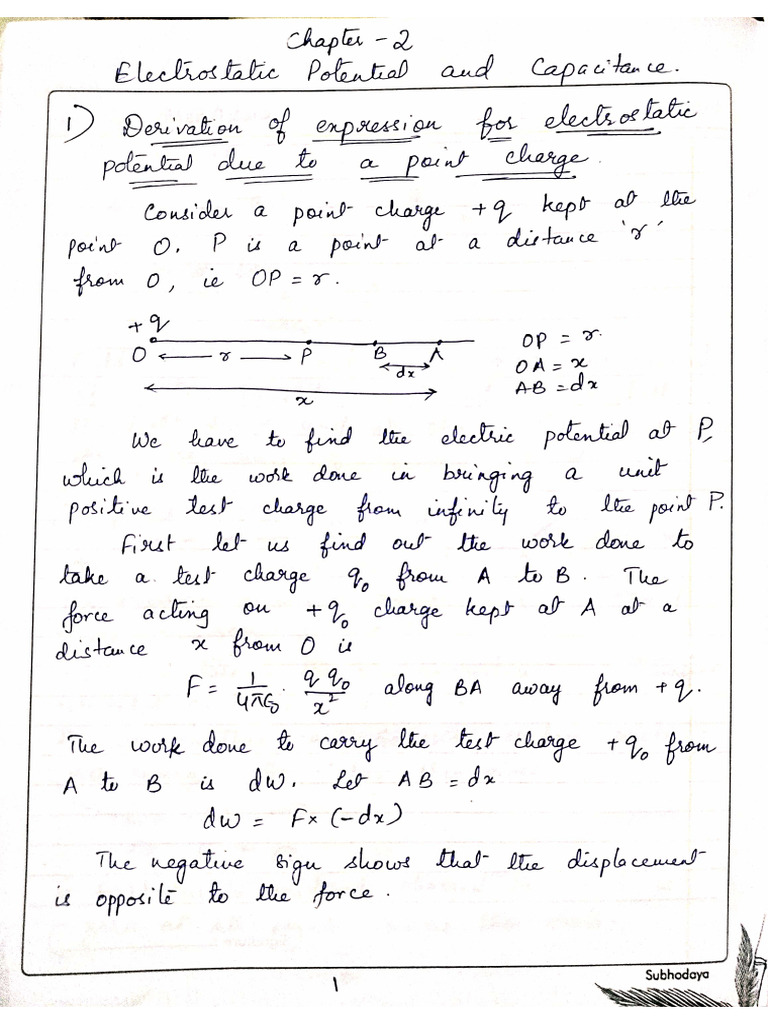 Chapter - 2
Electrostatic Potential and Capacitance.
1) Derivation of expression for electrostatic
potential due to a point charge.
Consider a point charge +q kept at the
point O. P is a point at a distance 'r'
from O, ie OP = r.
+q
O r P B A
dx
x
OP = r.
OA = x
AB = dx
We have to find the electric potential at P,
which is the work done in bringing a unit
positive test charge from infinity to the point P.
First let us find out the work done to
take a test charge q₀ from A to B. The
force acting on +q₀ charge kept at A at a
distance x from O is
F = 1/4πε₀ . q q₀/x² along BA away from +q.
The work done to carry the test charge +q₀ from
A to B is dw. Let AB = dx
dw = F× (-dx)
The negative sign shows that the displacement
is opposite to the force.
1
Subhodaya